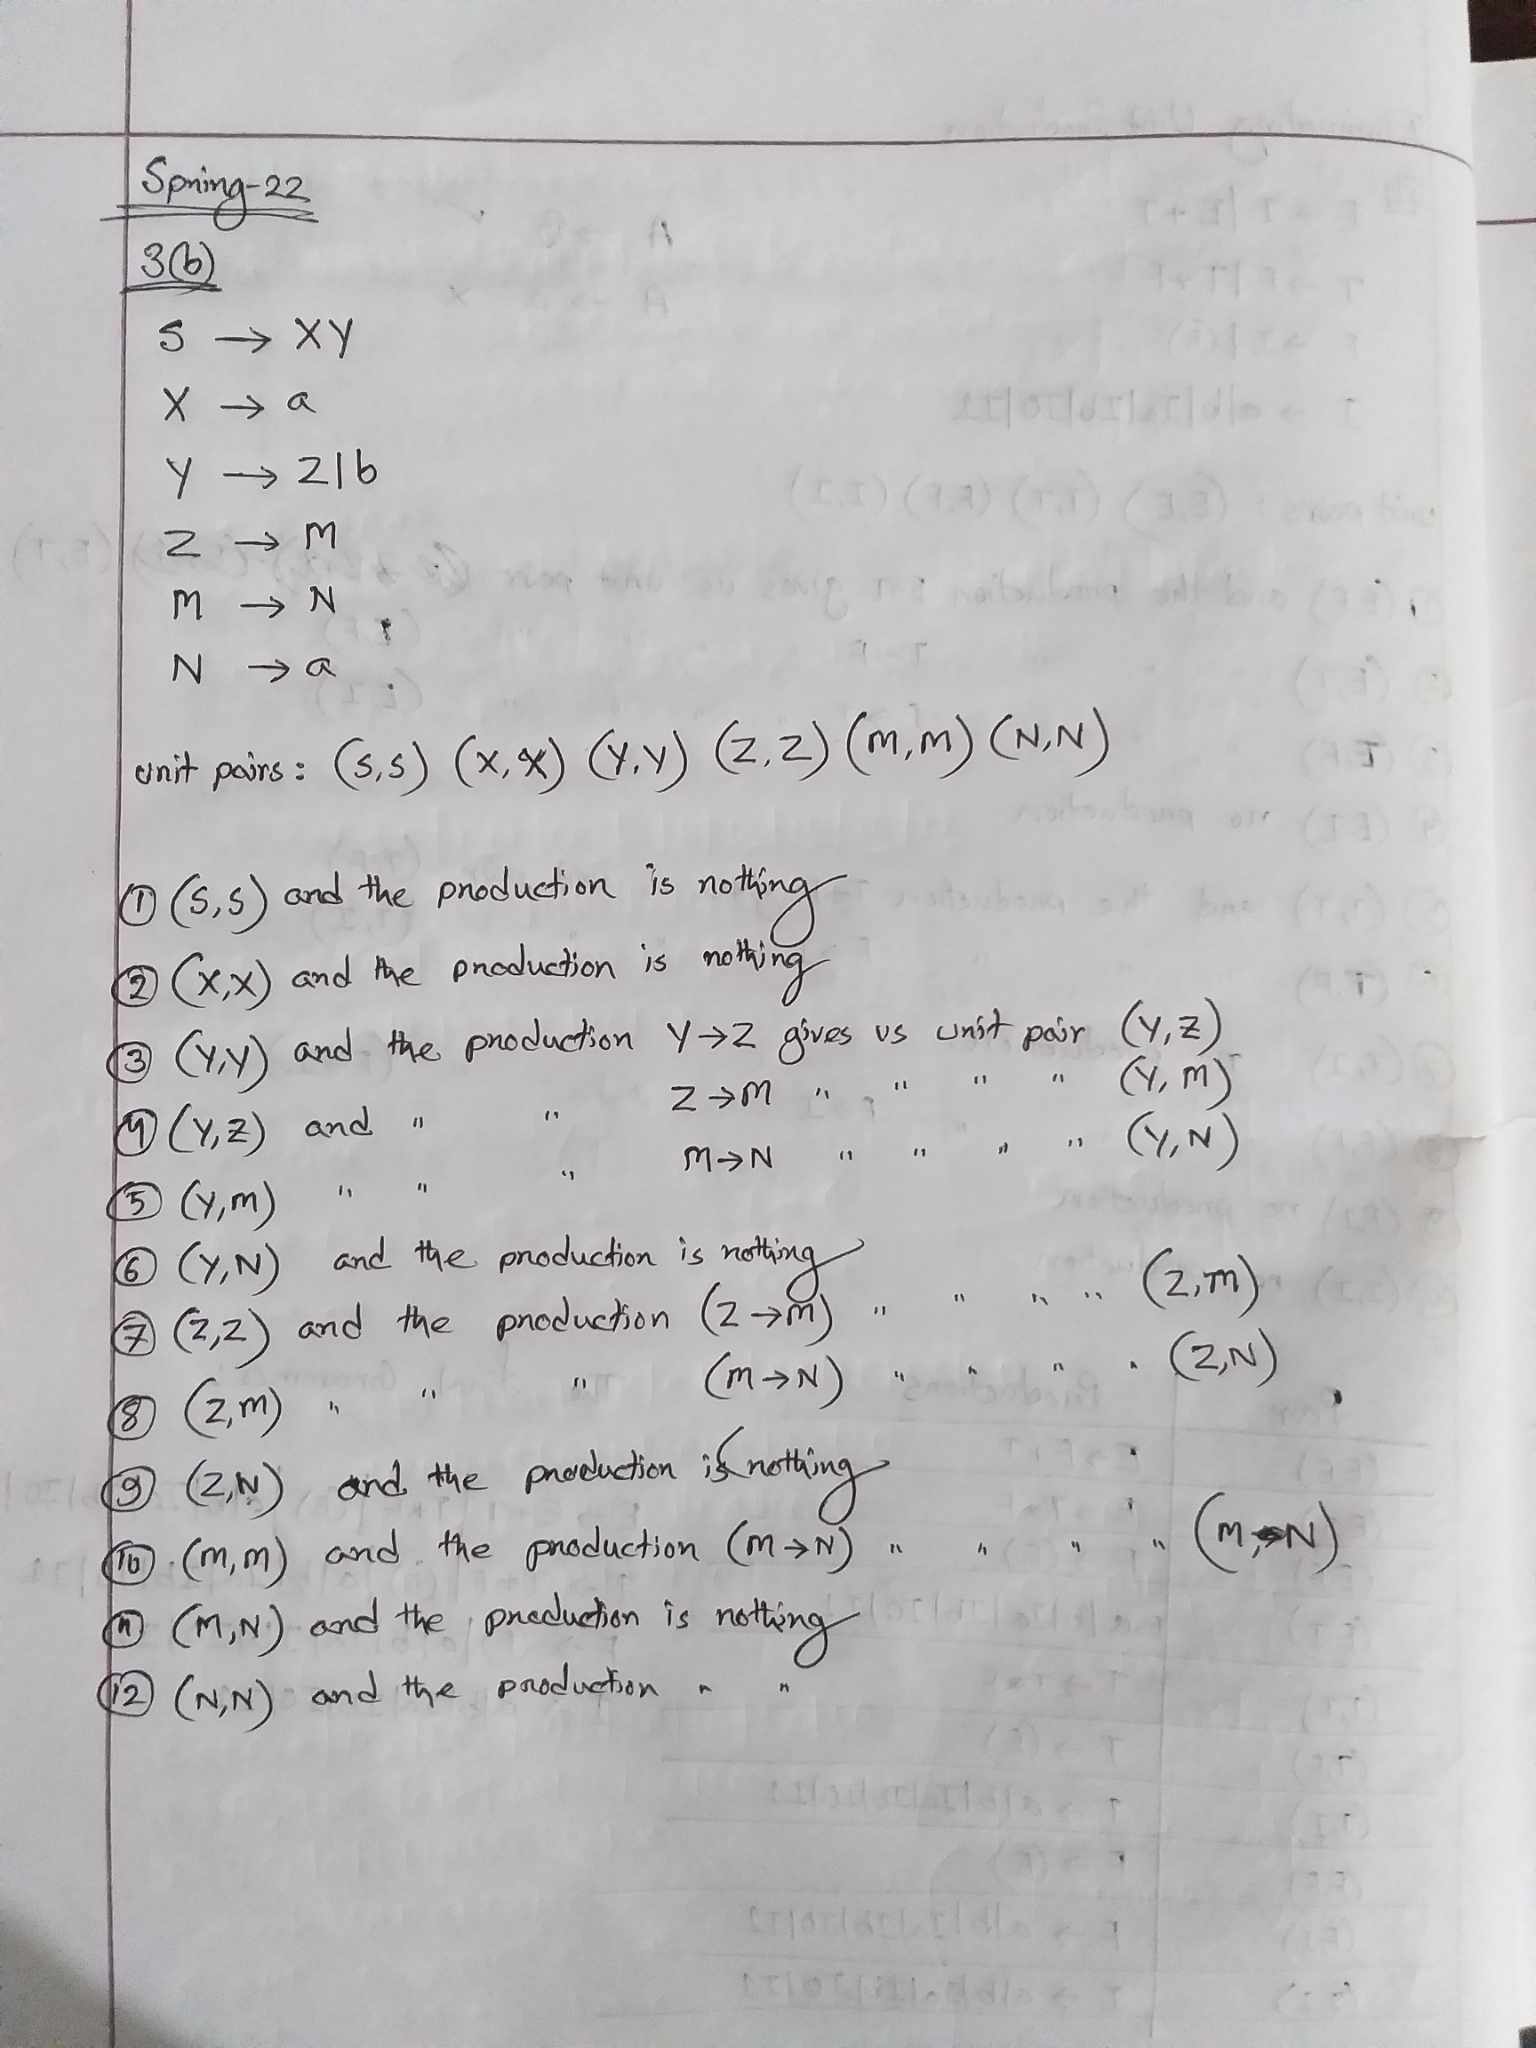 Spring-22
3(b)
S → XY
X → a
Y → Z|b
Z → M
M → N
N → a
unit pairs: (S,S) (X,X) (Y,Y) (Z,Z) (M,M) (N,N)
① (S,S) and the production is nothing
② (X,X) and the production is nothing
③ (Y,Y) and the production Y→Z gives us unit pair (Y,Z)
④ (Y,Z) and " " Z→M " " " " (Y,M)
⑤ (Y,M) " " " M→N " " " " (Y,N)
⑥ (Y,N) and the production is nothing
⑦ (Z,Z) and the production (Z→M) " " " " (Z,M)
⑧ (Z,M) " " " (M→N) " " " " (Z,N)
⑨ (Z,N) and the production is nothing
⑩ (M,M) and the production (M→N) " " " " (M,N)
⑪ (M,N) and the production is nothing
⑫ (N,N) and the production " "